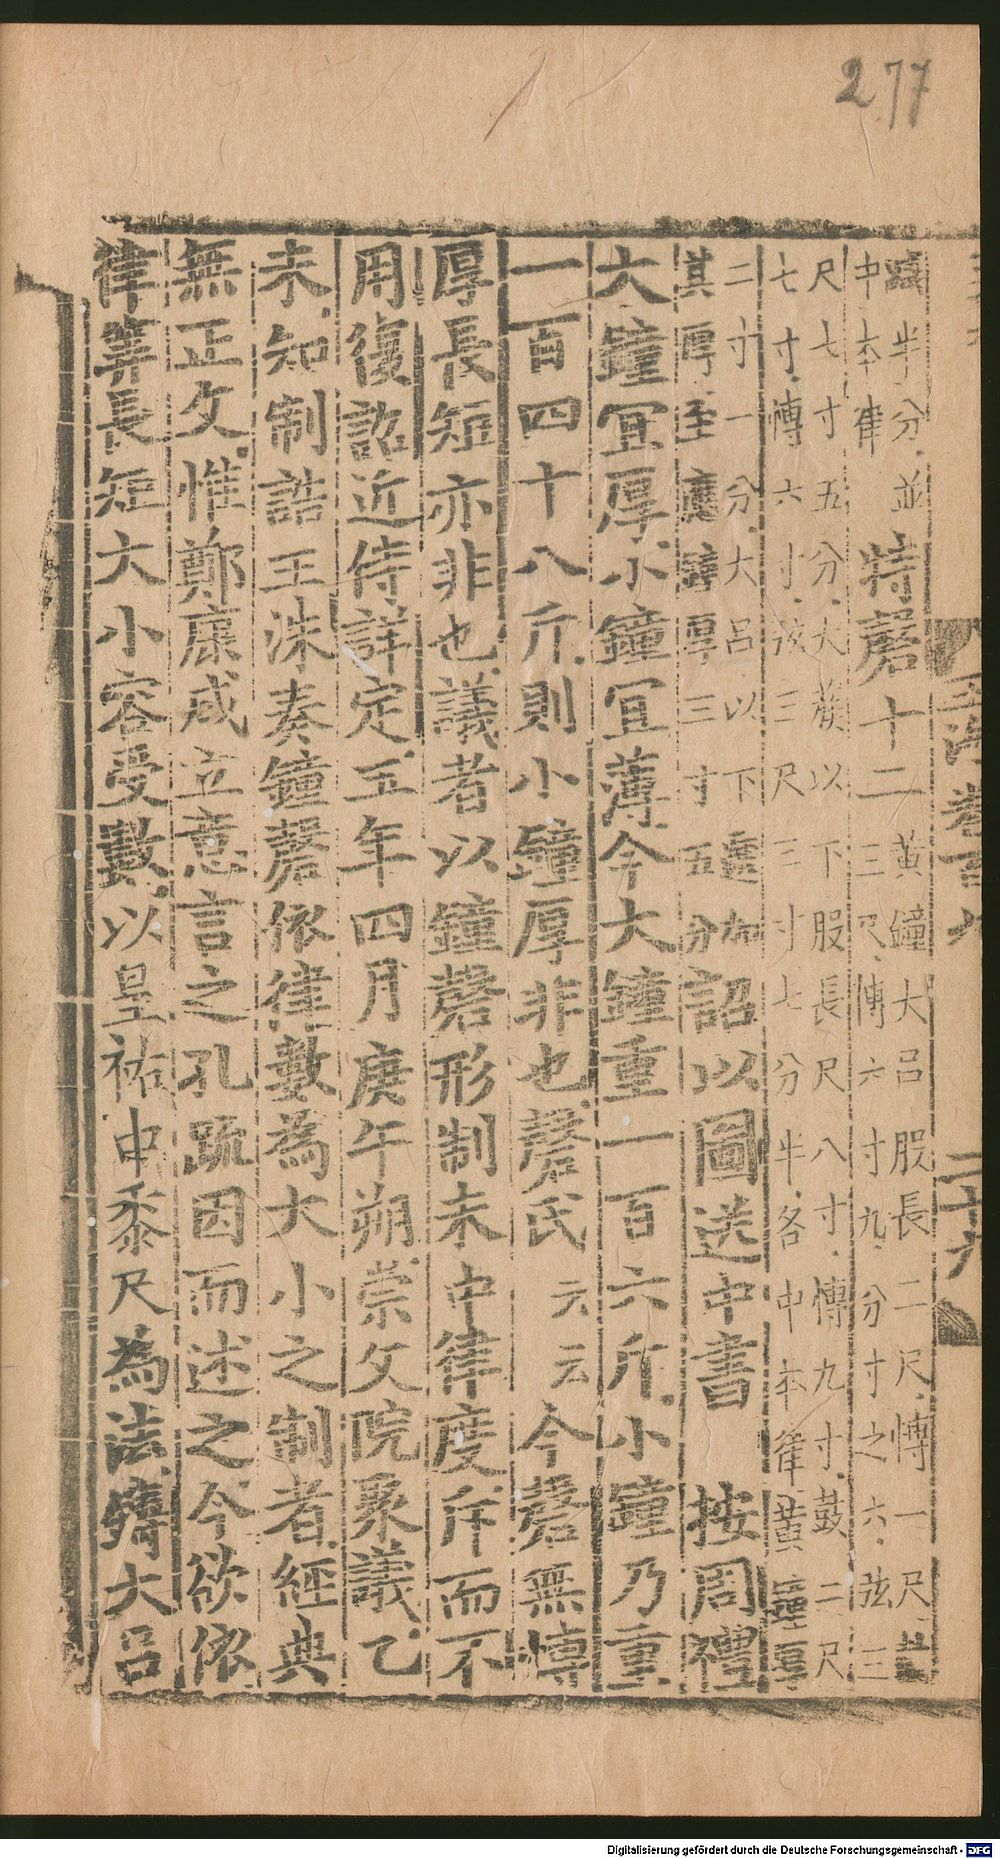 277
玉海卷百九 二十六
半分.並
中本律
特磬十二
黃鐘大呂股長二尺.博一尺.
三尺.博六寸九.分寸之六.弦三
尺七寸五分.大蔟以下股長尺八寸.博九寸.鼓二尺
七寸.博六寸.弦三尺三寸七分半.各中本律.黃鐘厚
二寸一分.大呂以下遞加
其厚至應鐘厚三寸五分
詔以圖送中書 按周禮
大鐘宜厚.小鐘宜薄.今大鐘重一百六斤.小鐘乃重
一百四十八斤.則小鐘厚非也.磬氏云云今磬無博
厚長短亦非也.議者以鐘磬形制未中律度.斥而不
用復詔近侍詳定.五年四月庚午朔.崇文院聚議.乙
未.知制誥王洙奏鐘磬依律數為大小之制者.經典
無正文.惟鄭康成立意言之孔疏因而述之今欲依
律筭長短大小容受數.以皇祐中黍尺為法.鑄大呂
Digitalisierung gefördert durch die Deutsche Forschungsgemeinschaft - DFG